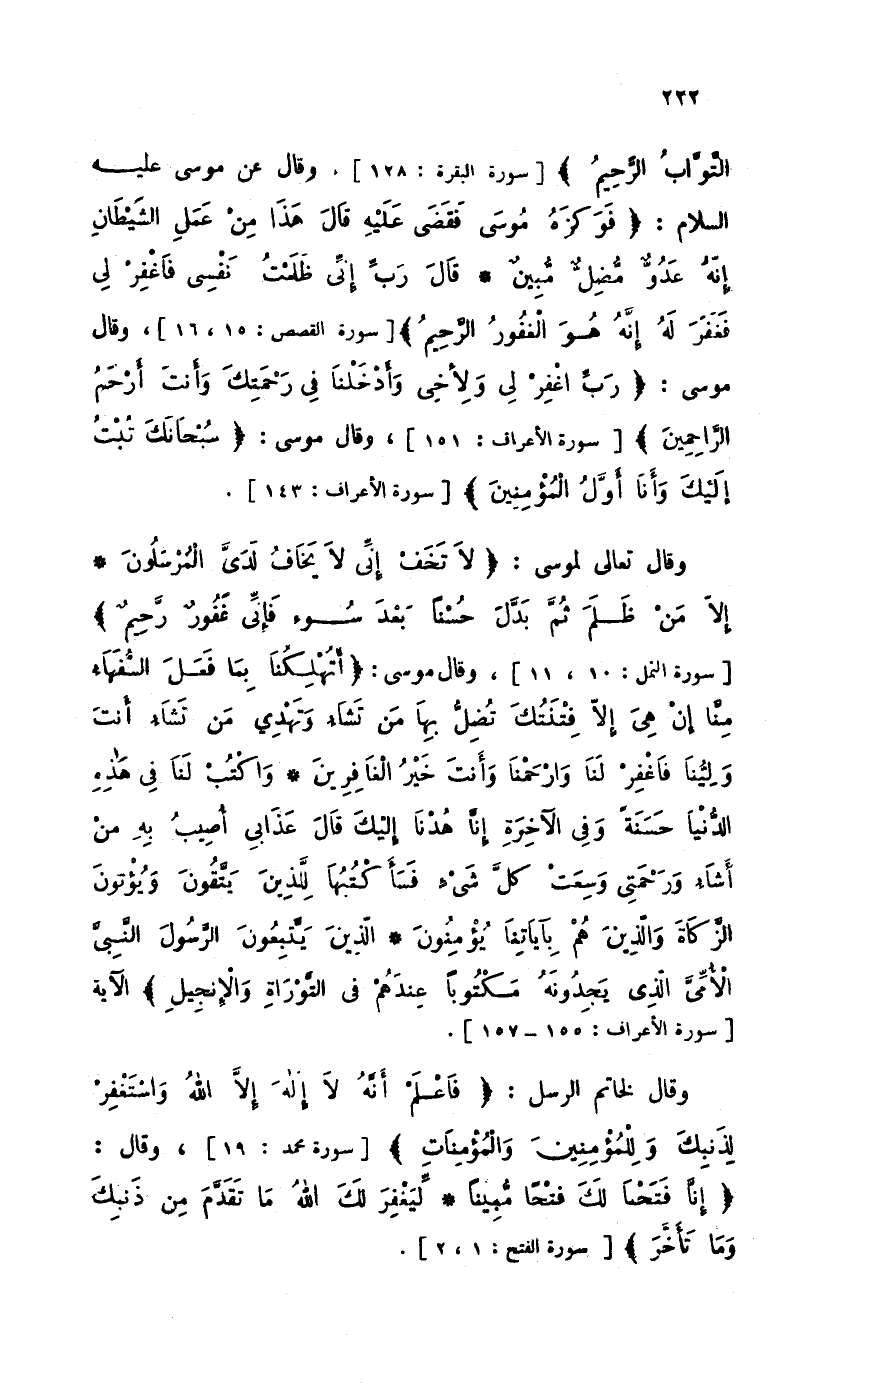 ٢٣٢
التَّوَّابُ الرَّحِيمُ ﴾ [ سورة البقرة : ١٢٨ ] . وقال عن موسى عليه
السلام : ﴿ فَوَكَزَهُ مُوسَى فَقَضَى عَلَيْهِ قَالَ هَذَا مِنْ عَمَلِ الشَّيْطَانِ
إِنَّهُ عَدُوٌّ مُّضِلٌّ مُّبِينٌ * قَالَ رَبِّ إِنِّى ظَلَمْتُ نَفْسِى فَاغْفِرْ لِى
فَغَفَرَ لَهُ إِنَّهُ هُوَ الْغَفُورُ الرَّحِيمُ ﴾[ سورة القصص : ١٥ ، ١٦ ] ، وقال
موسى : ﴿ رَبِّ اغْفِرْ لِى وَلِأَخِى وَأَدْخِلْنَا فِى رَحْمَتِكَ وَأَنتَ أَرْحَمُ
الرَّاحِمِينَ ﴾ [ سورة الأعراف : ١٥١ ] ، وقال موسى : ﴿ سُبْحَانَكَ تُبْتُ
إِلَيْكَ وَأَنَا أَوَّلُ الْمُؤْمِنِينَ ﴾ [ سورة الأعراف : ١٤٣ ] .
وقال تعالى لموسى : ﴿ لاَ تَخَفْ إِنِّى لاَ يَخَافُ لَدَىَّ الْمُرْسَلُونَ *
إِلاَّ مَنْ ظَلَمَ ثُمَّ بَدَّلَ حُسْنًا بَعْدَ سُوءٍ فَإِنِّى غَفُورٌ رَّحِيمٌ ﴾
[ سورة النمل : ١٠ ، ١١ ] ، وقال موسى : ﴿ أَتُهْلِكُنَا بِمَا فَعَلَ السُّفَهَاءُ
مِنَّا إِنْ هِىَ إِلاَّ فِتْنَتُكَ تُضِلُّ بِهَا مَن تَشَاءُ وَتَهْدِي مَن تَشَاءُ أَنتَ
وَلِيُّنَا فَاغْفِرْ لَنَا وَارْحَمْنَا وَأَنتَ خَيْرُ الْغَافِرِينَ * وَاكْتُبْ لَنَا فِى هَذِهِ
الدُّنْيَا حَسَنَةً وَفِى الآخِرَةِ إِنَّا هُدْنَا إِلَيْكَ قَالَ عَذَابِي أُصِيبُ بِهِ مَنْ
أَشَاءُ وَرَحْمَتِى وَسِعَتْ كُلَّ شَىْءٍ فَسَأَكْتُبُهَا لِلَّذِينَ يَتَّقُونَ وَيُؤْتُونَ
الزَّكَاةَ وَالَّذِينَ هُمْ بِآيَاتِنَا يُؤْمِنُونَ * الَّذِينَ يَتَّبِعُونَ الرَّسُولَ النَّبِىَّ
الْأُمِّىَّ الَّذِى يَجِدُونَهُ مَكْتُوبًا عِندَهُمْ فِى التَّوْرَاةِ وَالْإِنجِيلِ ﴾ الآية
[ سورة الأعراف : ١٥٥ – ١٥٧ ] .
وقال لخاتم الرسل : ﴿ فَاعْلَمْ أَنَّهُ لاَ إِلَهَ إِلاَّ اللهُ وَاسْتَغْفِرْ
لِذَنبِكَ وَلِلْمُؤْمِنِينَ وَالْمُؤْمِنَاتِ ﴾ [ سورة محمد : ١٩ ] ، وقال :
﴿ إِنَّا فَتَحْنَا لَكَ فَتْحًا مُّبِينًا * لِّيَغْفِرَ لَكَ اللهُ مَا تَقَدَّمَ مِن ذَنبِكَ
وَمَا تَأَخَّرَ ﴾ [ سورة الفتح : ١ ، ٢ ] .